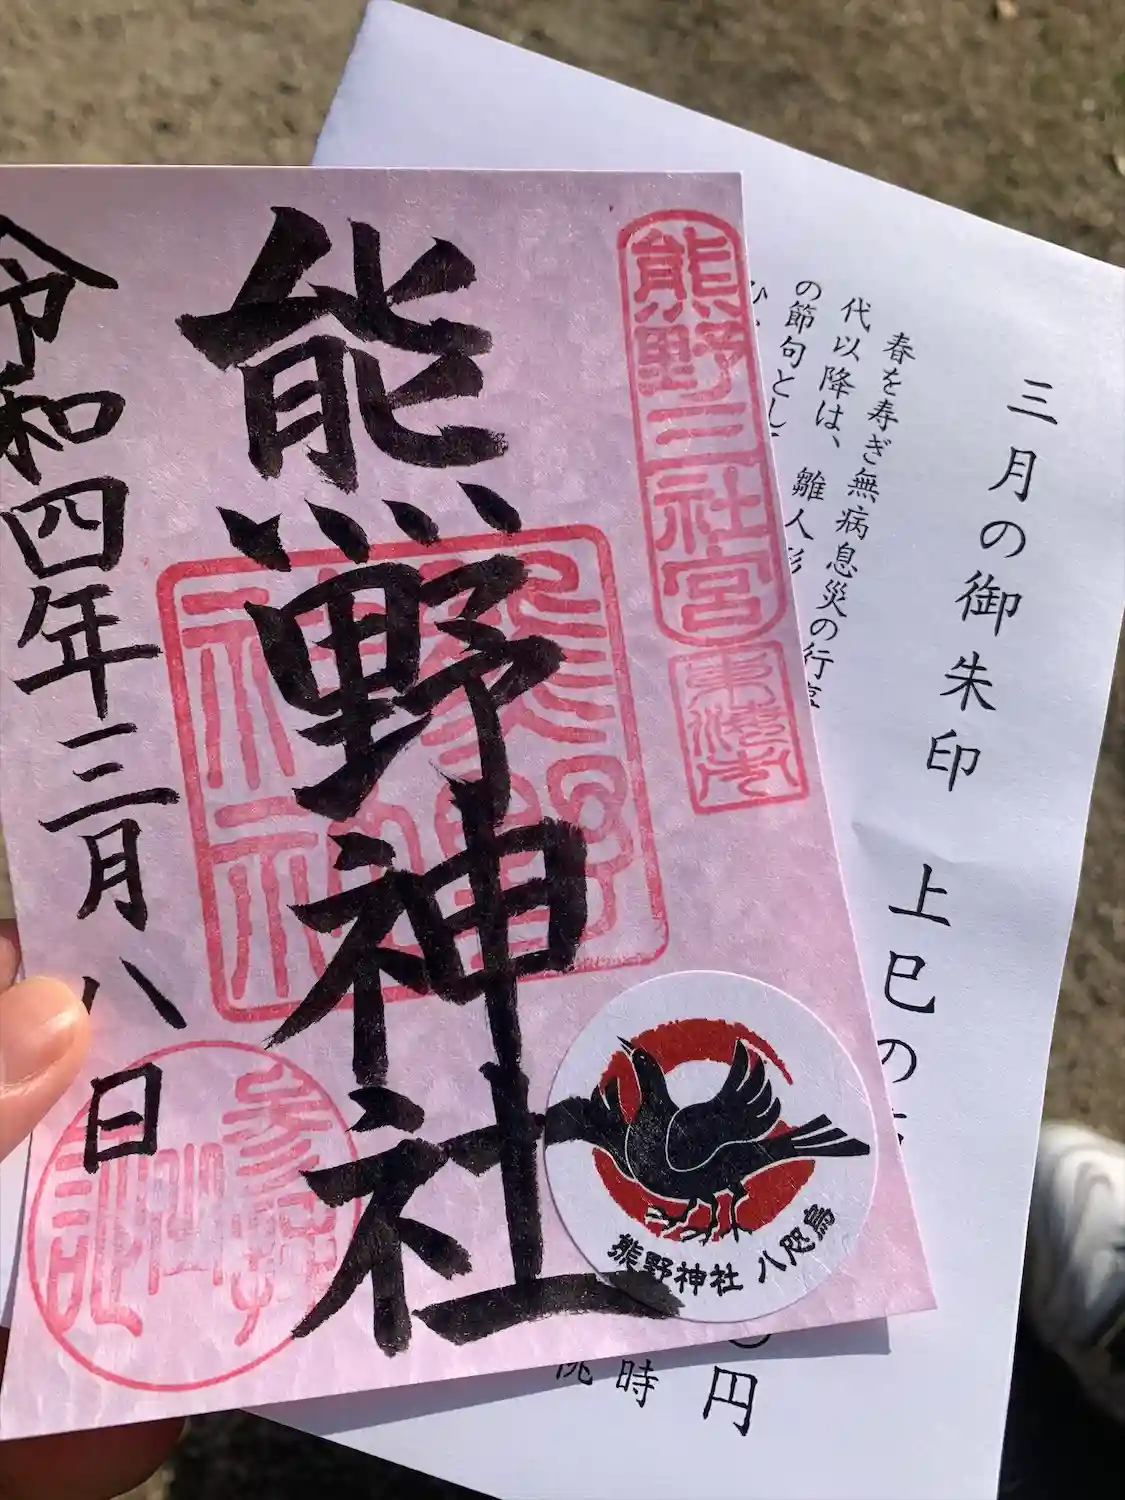 三月の御朱印 上巳の
春を寿ぎ無病息災の行事
代以降は、雛人形
の節句とし
ひ
時
円
熊野三社宮
熊野神社
熊野神社
令和四年三月八日
熊野神社 八咫烏